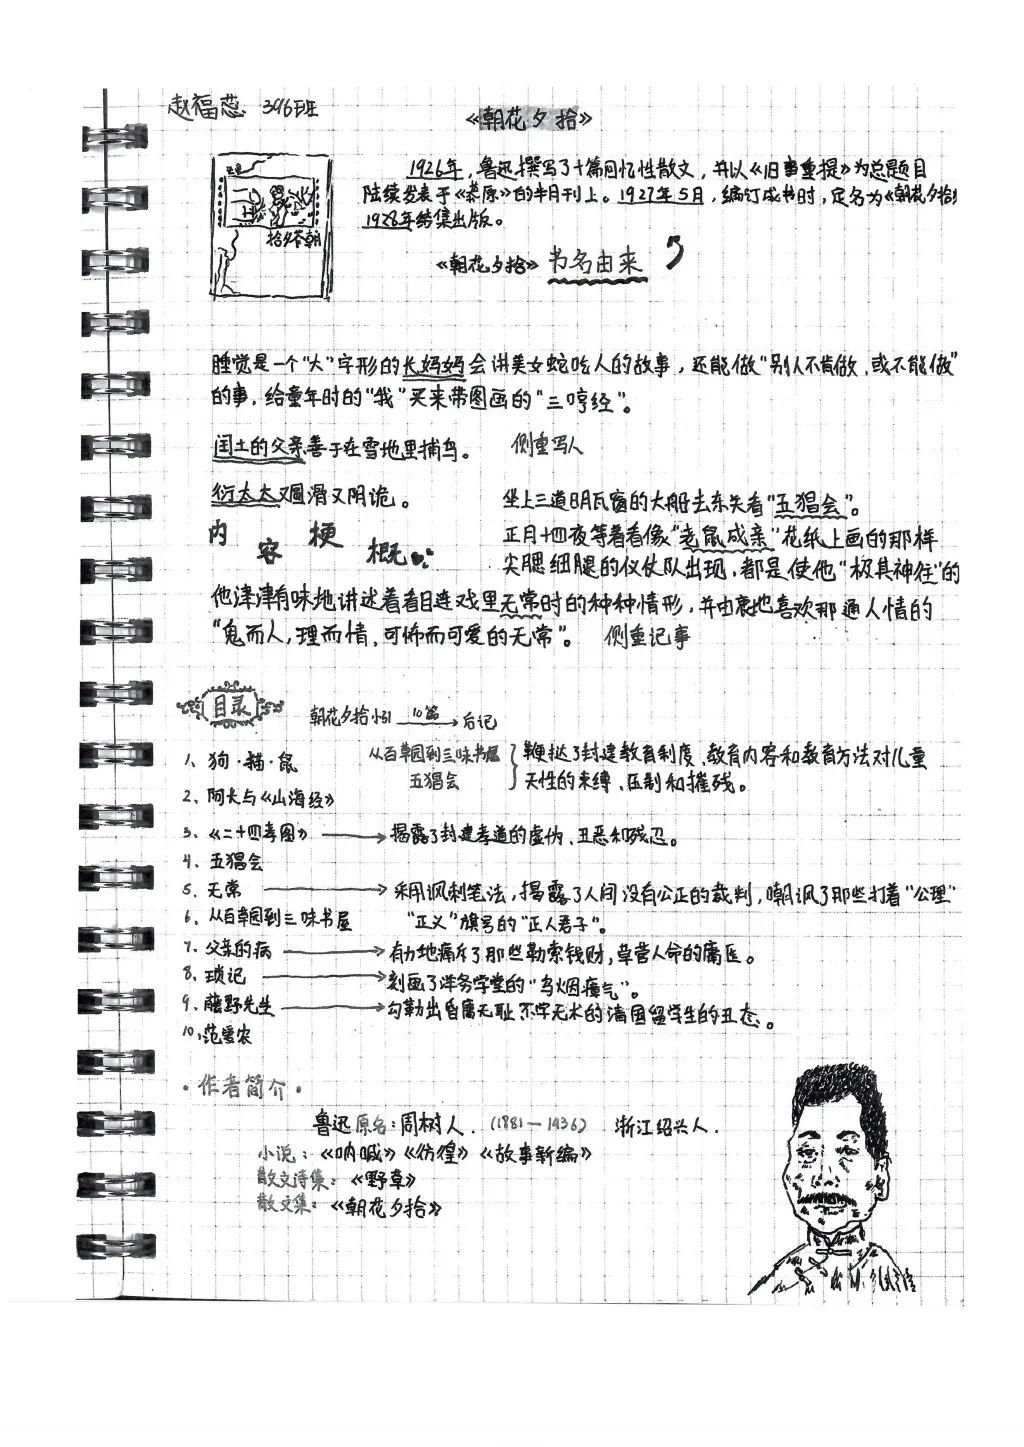 赵福蕊 396班
《朝花夕拾》
1926年，鲁迅撰写了十篇回忆性散文，并以《旧事重提》为总题目
陆续发表于《莽原》的半月刊上。1927年5月，编订成书时，定名为《朝花夕拾》
1928年结集出版。
拾夕花朝
《朝花夕拾》书名由来
睡觉是一个"大"字形的长妈妈会讲美女蛇吃人的故事，还能做"别人不肯做，或不能做"
的事，给童年时的"我"买来带图画的"三哼经"。
闰土的父亲善于在雪地里捕鸟。 侧重写人
衍太太又圆滑又阴诡。
内容梗概
坐上三道明瓦窗的大船去东关看"五猖会"。
正月十四夜等着看像"老鼠成亲"花纸上画的那样
尖腮细腿的仪仗队出现，都是使他"极其神往"的
他津津有味地讲述着看目连戏里无常时的种种情形，并由衷地喜欢那通人情的
"鬼而人，理而情，可怖而可爱的无常"。 侧重记事
目录 朝花夕拾小引 10篇 后记
1、狗·猫·鼠
从百草园到三味书屋
五猖会
鞭挞了封建教育制度、教育内容和教育方法对儿童
天性的束缚、压制和摧残。
2、阿长与《山海经》
3、《二十四孝图》 揭露了封建孝道的虚伪、丑恶和残忍。
4、五猖会
5、无常 采用讽刺笔法，揭露了人间没有公正的裁判，嘲讽了那些打着"公理"
"正义"旗号的"正人君子"。
6、从百草园到三味书屋
7、父亲的病 有力地痛斥了那些勒索钱财，草菅人命的庸医。
8、琐记 刻画了洋务学堂的"乌烟瘴气"。
9、藤野先生 勾勒出自庸无耻 不学无术的清国留学生的丑态。
10、范爱农
·作者简介·
鲁迅原名：周树人．(1881—1936) 浙江绍兴人．
小说：《呐喊》《彷徨》《故事新编》
散文诗集：《野草》
散文集：《朝花夕拾》